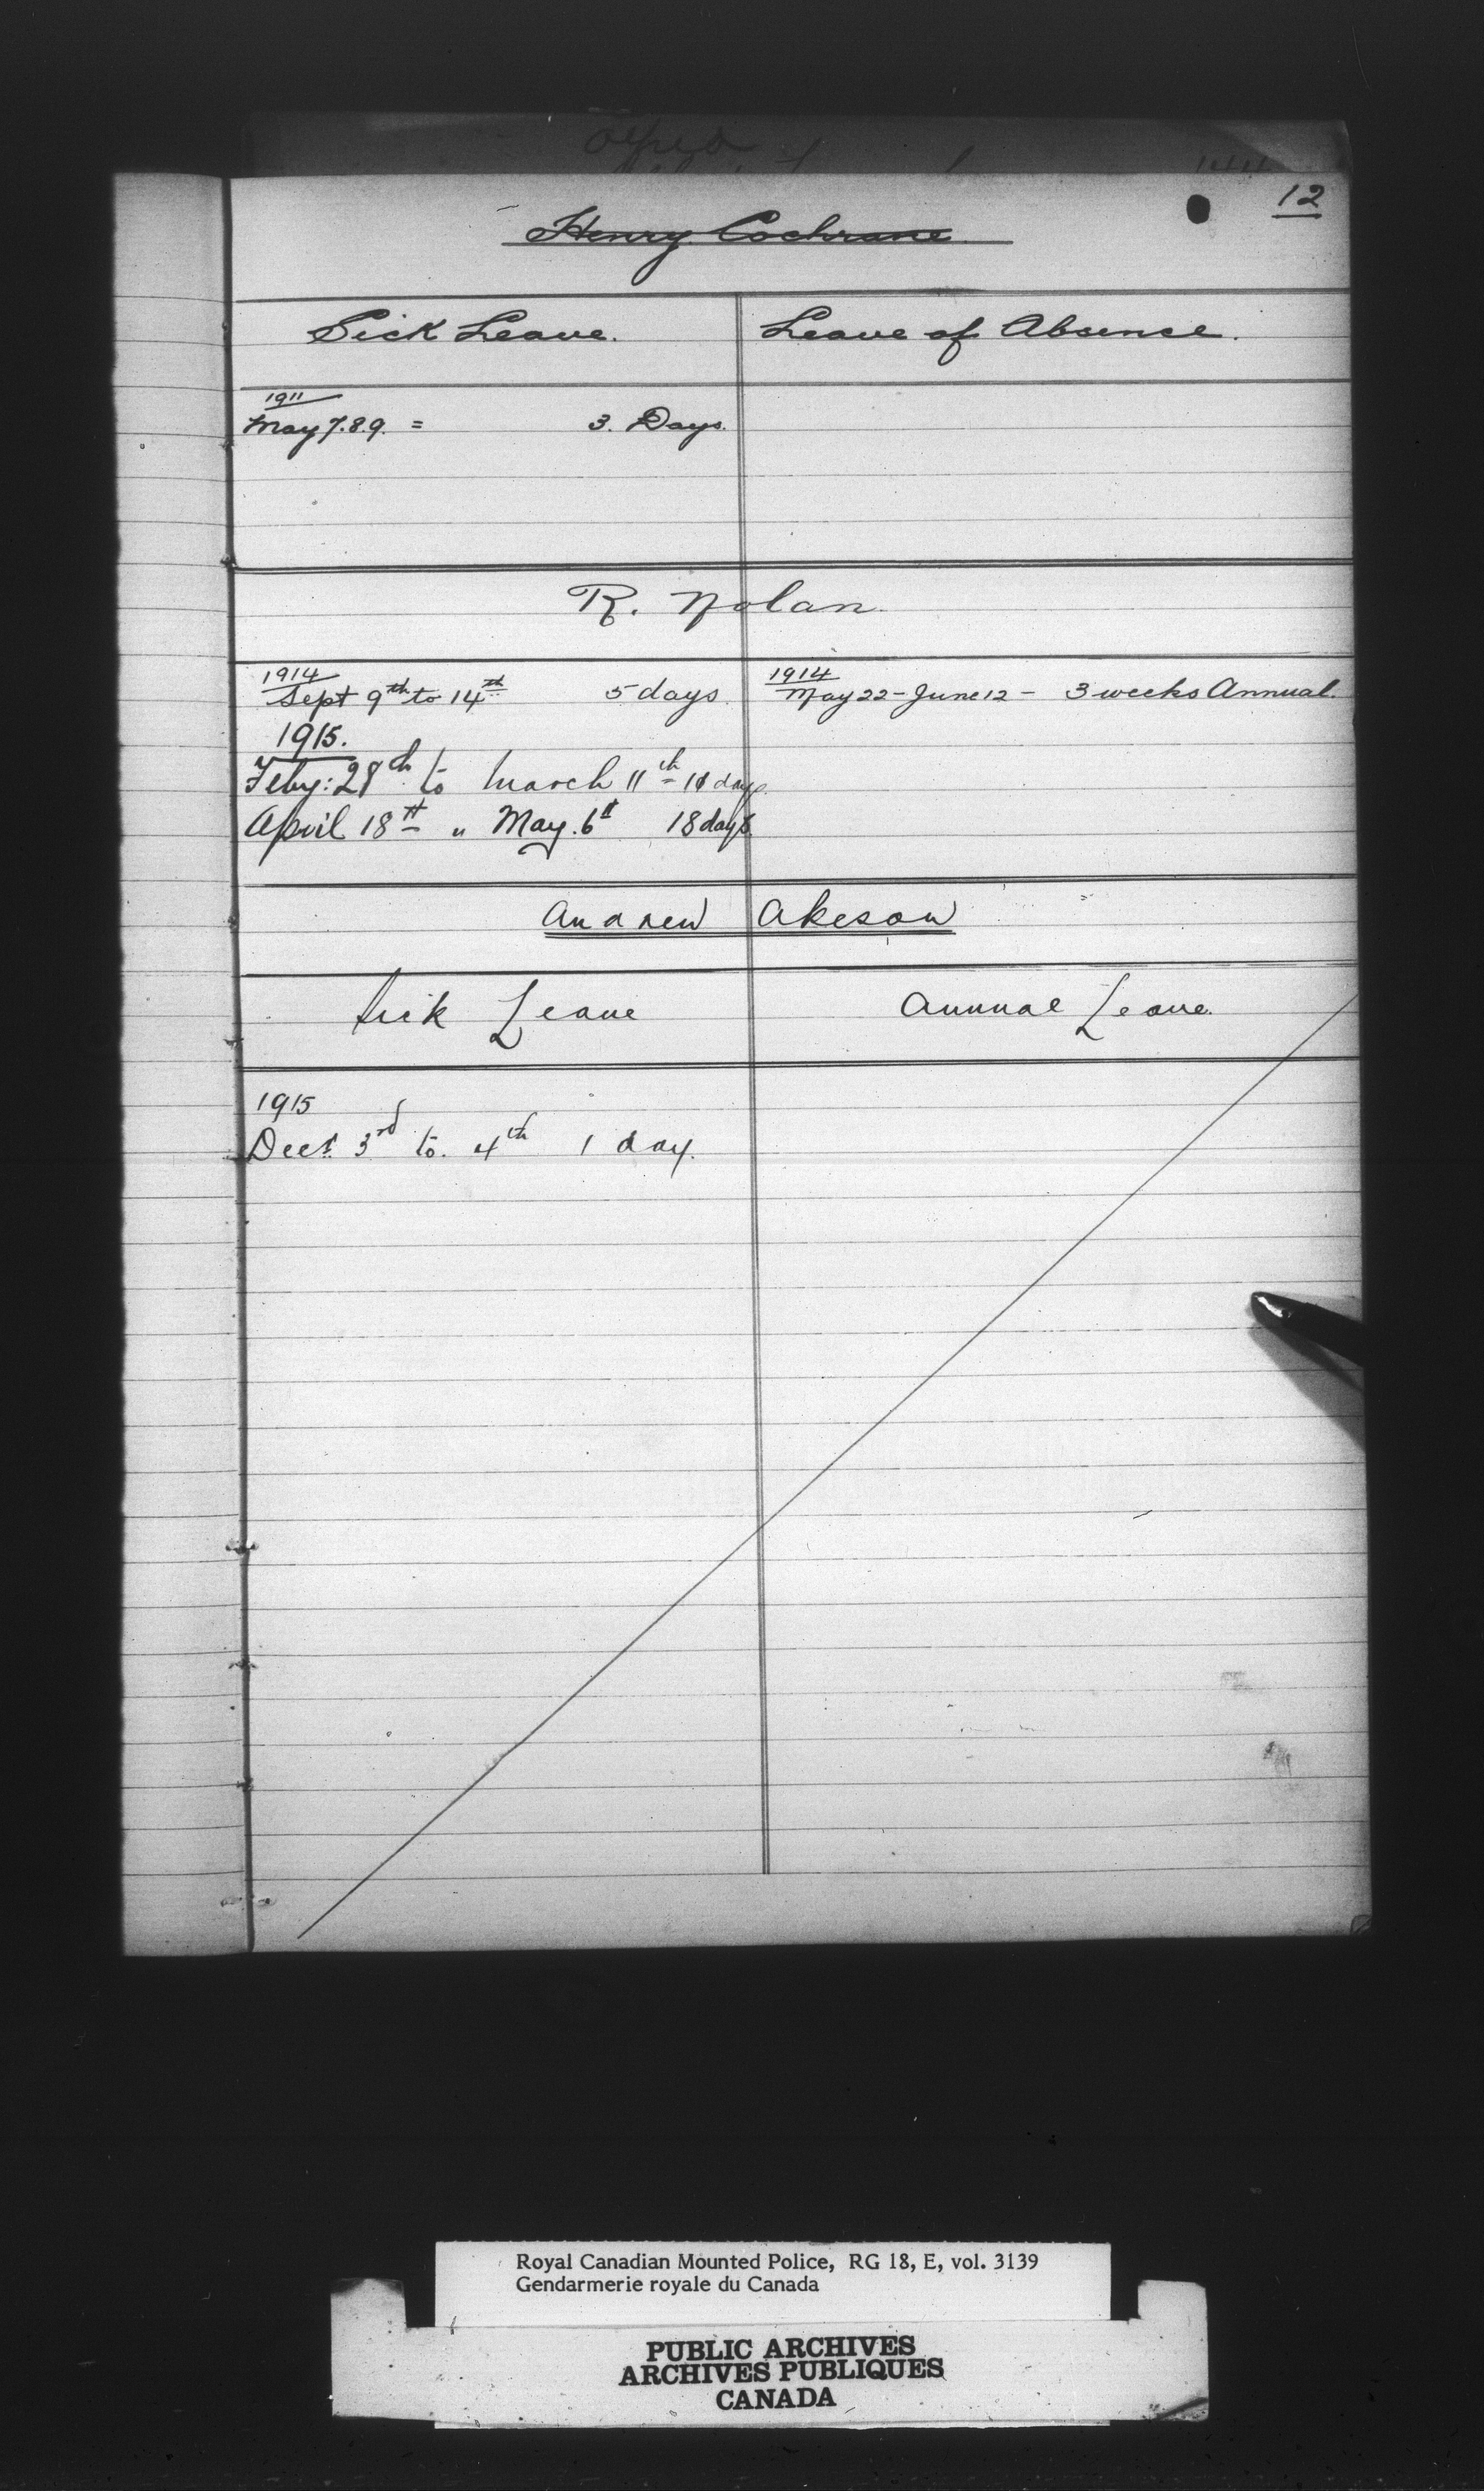 12
Henry Cochrane
Sick Leave. Leave of Absence.
1911
May 7.8.9. = 3. Days.
R. Nolan
1914 1914
Sept 9th to 14th 5 days May 22 - June 12 - 3 weeks Annual.
1915.
Feby: 28th to March 11th - 11 days.
April 18th " May. 6th 18 days.
Andrew Akeson
Sick Leave Annual Leave.
1915
Decr 3rd to. 4th 1 day.
Royal Canadian Mounted Police, RG 18, E, vol. 3139
Gendarmerie royale du Canada
PUBLIC ARCHIVES
ARCHIVES PUBLIQUES
CANADA